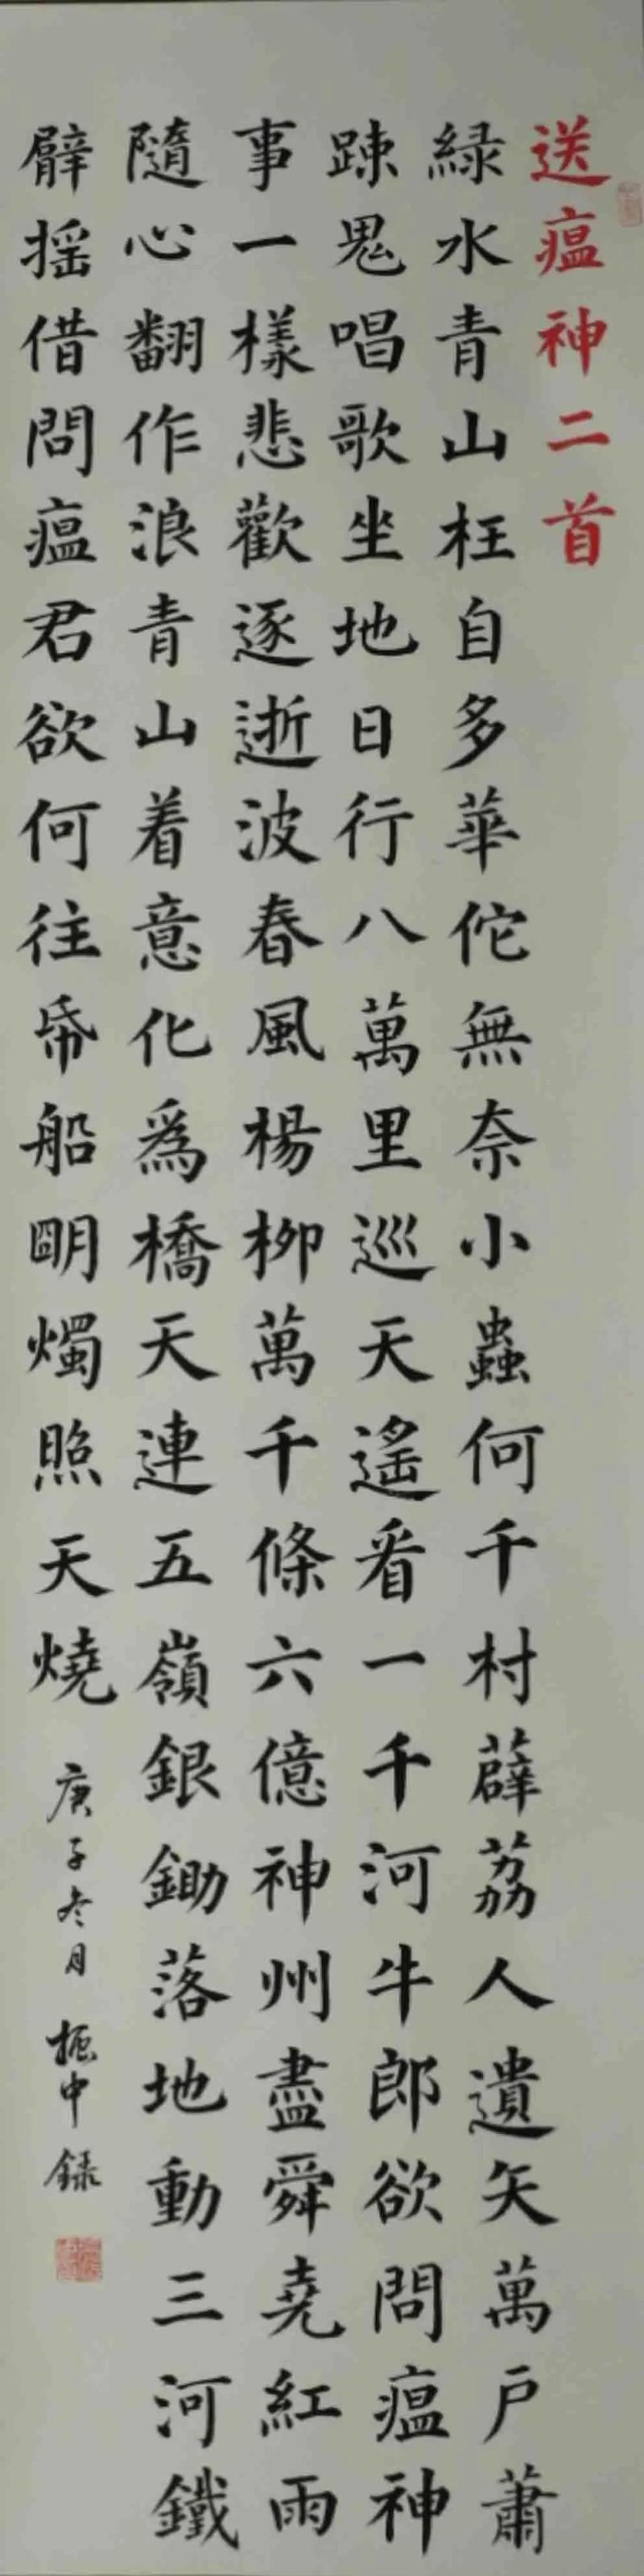 送瘟神二首
緑水青山枉自多華佗無奈小蟲何千村薜荔人遺矢萬户蕭
踈鬼唱歌坐地日行八萬里巡天遥看一千河牛郎欲問瘟神
事一樣悲歡逐逝波春風楊柳萬千條六億神州盡舜堯紅雨
隨心翻作浪青山着意化為橋天連五嶺銀鋤落地動三河鐵
臂摇借問瘟君欲何往帋船明燭照天燒
庚子冬月 振中録